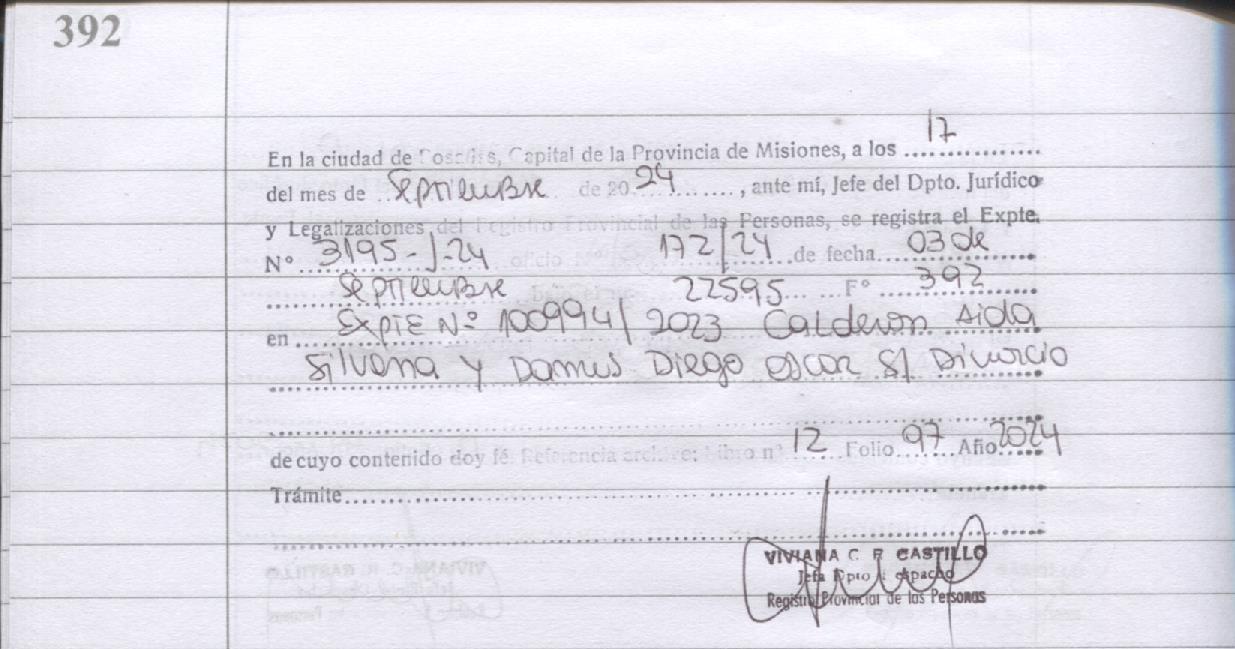 392
En la ciudad de Posadas, Capital de la Provincia de Misiones, a los 17
del mes de Septiembre de 2024, ante mí, Jefe del Dpto. Jurídico
y Legalizaciones del Registro Provincial de las Personas, se registra el Expte.
Nº 3195-J-24 oficio Nº 172/24 de fecha 03 de
Septiembre 22595 Fº 392
en Expte Nº 100994/2023 Calderon Aida
Silvana y Domus Diego Oscar S/ Divorcio
de cuyo contenido doy fé. Referencia archivo: Libro nº 12 Folio 97 Año 2024
Trámite
VIVIANA C. R. CASTILLO
Jefa Dpto
Registro Provincial de las Personas